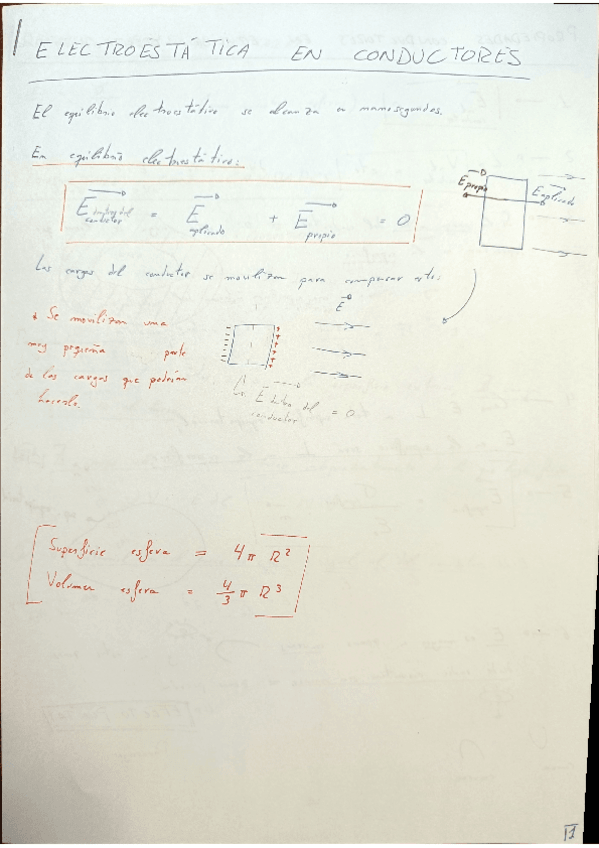 ELECTROESTÁTICA EN CONDUCTORES
El equilibrio electroestático se alcanza en nanosegundos.
En equilibrio electrostático:
E dentro del conductor = E aplicado + E propio = 0
E propio
E aplicado
Las cargas del conductor se movilizan para compensar esto:
* Se movilizan una
muy pequeña parte
de las cargas que podrían
hacerlo.
E
E dentro del conductor = 0
Superficie esfera = 4π R²
Volumen esfera = 4/3 π R³
11